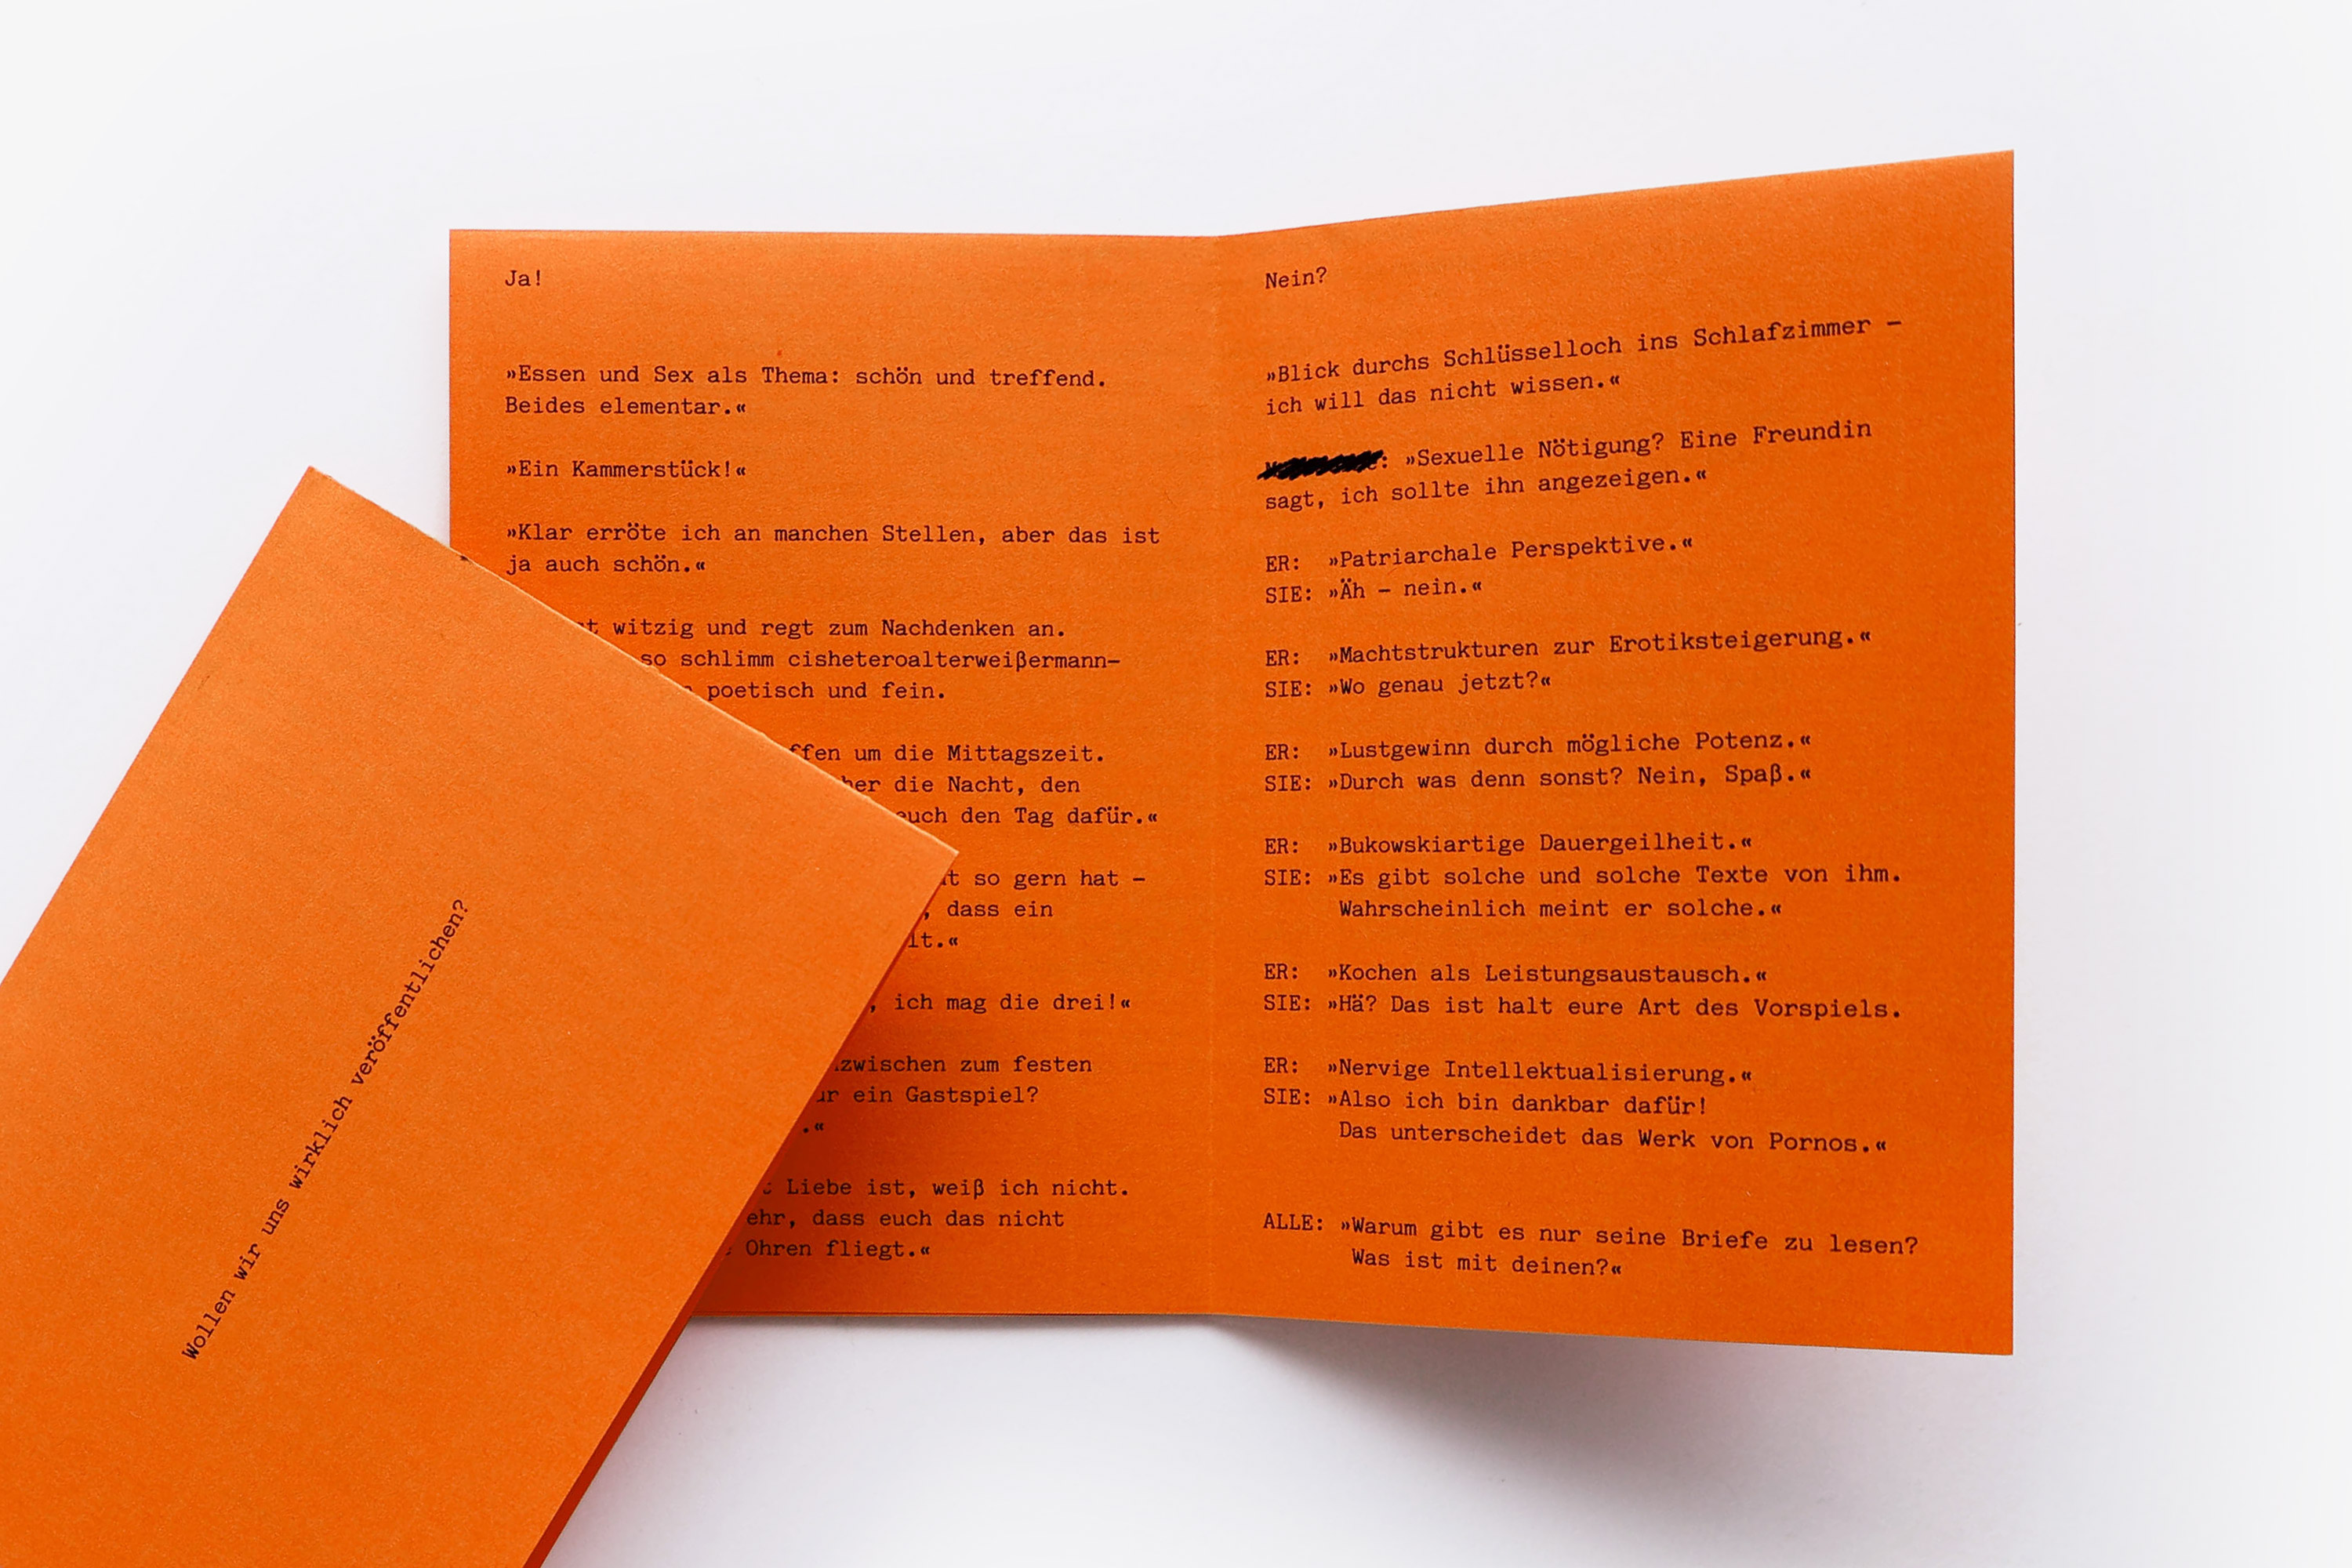 Ja!
»Essen und Sex als Thema: schön und treffend.
Beides elementar.«
»Ein Kammerstück!«
»Klar erröte ich an manchen Stellen, aber das ist
ja auch schön.«
witzig und regt zum Nachdenken an.
so schlimm cisheteroalterweißermann-
poetisch und fein.
um die Mittagszeit.
die Nacht, den
den Tag dafür.«
so gern hat –
, dass ein
, ich mag die drei!«
zum festen
ein Gastspiel?
.«
Liebe ist, weiß ich nicht.
dass euch das nicht
Ohren fliegt.«
Nein?
»Blick durchs Schlüsselloch ins Schlafzimmer –
ich will das nicht wissen.«
: »Sexuelle Nötigung? Eine Freundin
sagt, ich sollte ihn angezeigen.«
ER: »Patriarchale Perspektive.«
SIE: »Äh – nein.«
ER: »Machtstrukturen zur Erotiksteigerung.«
SIE: »Wo genau jetzt?«
ER: »Lustgewinn durch mögliche Potenz.«
SIE: »Durch was denn sonst? Nein, Spaß.«
ER: »Bukowskiartige Dauergeilheit.«
SIE: »Es gibt solche und solche Texte von ihm.
Wahrscheinlich meint er solche.«
ER: »Kochen als Leistungsaustausch.«
SIE: »Hä? Das ist halt eure Art des Vorspiels.
ER: »Nervige Intellektualisierung.«
SIE: »Also ich bin dankbar dafür!
Das unterscheidet das Werk von Pornos.«
ALLE: »Warum gibt es nur seine Briefe zu lesen?
Was ist mit deinen?«
Wollen wir uns wirklich veröffentlichen?